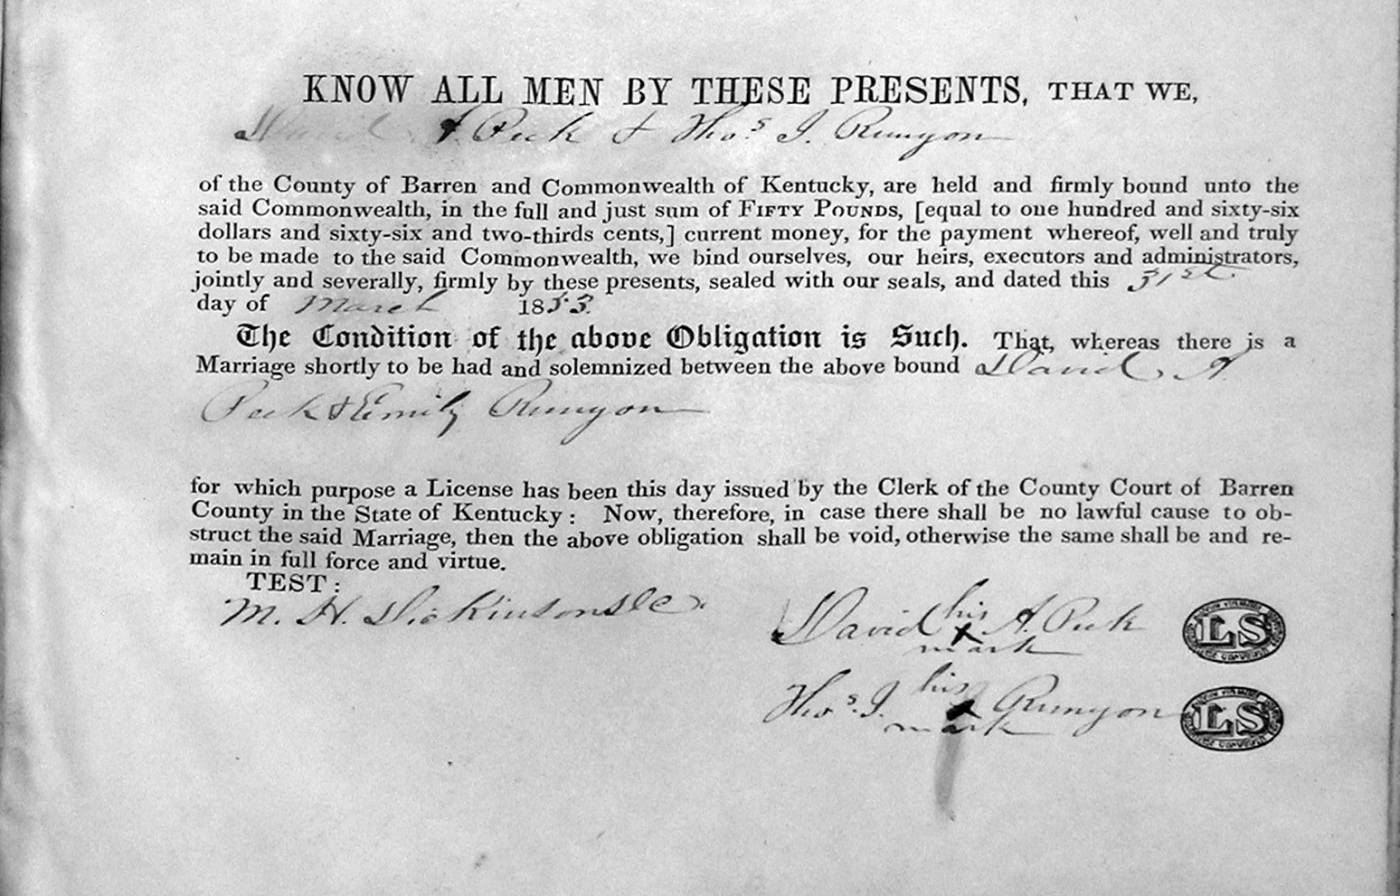 KNOW ALL MEN BY THESE PRESENTS, THAT WE,
David A. Peek & Thos. J. Runyon
of the County of Barren and Commonwealth of Kentucky, are held and firmly bound unto the
said Commonwealth, in the full and just sum of FIFTY POUNDS, [equal to one hundred and sixty-six
dollars and sixty-six and two-thirds cents,] current money, for the payment whereof, well and truly
to be made to the said Commonwealth, we bind ourselves, our heirs, executors and administrators,
jointly and severally, firmly by these presents, sealed with our seals, and dated this 31st
day of March 1853.
The Condition of the above Obligation is Such. That, whereas there is a
Marriage shortly to be had and solemnized between the above bound David A
Peek & Emily Runyon
for which purpose a License has been this day issued by the Clerk of the County Court of Barren
County in the State of Kentucky: Now, therefore, in case there shall be no lawful cause to ob-
struct the said Marriage, then the above obligation shall be void, otherwise the same shall be and re-
main in full force and virtue.
TEST:
M. H. Dickinson
his
David x A. Peek LS
mark
his
Thos. J. x Runyon LS
mark